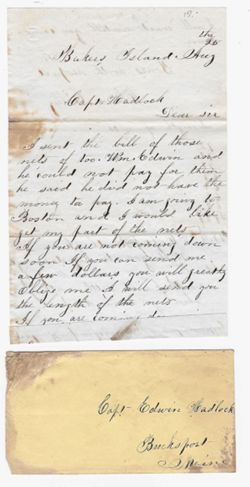 the
26
Bakers Island Aug
Capt. Hadlock
Dear sir
I sent the bill of those
nets of too. Wm Edwin and
he could not pay for them
he said he did not have the
money to pay. I am going to
Boston and I would like
get my part of the nets
If you are not coming down
soon If you can send me
a few dollars you will greatly
oblige me I will send you
the length of the nets
If you are coming
Capt Edwin Hadlock
Bucksport
Maine